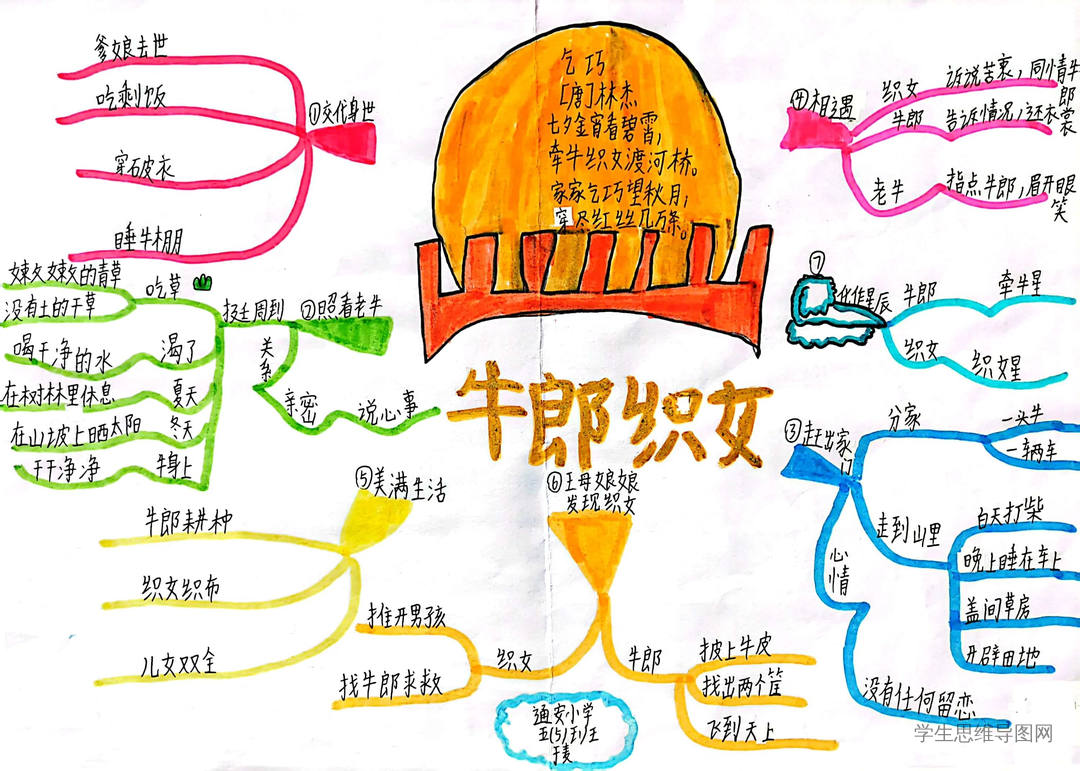 乞巧
[唐]林杰
七夕金宵看碧霄，
牵牛织女渡河桥。
家家乞巧望秋月，
穿尽红丝几万条。
牛郎织女
①交代身世
爹娘去世
吃剩饭
穿破衣
睡牛棚
②照看老牛
周到
吃草
嫩嫩的青草
没有土的干草
渴了
喝干净的水
夏天
在树林里休息
冬天
在山坡上晒太阳
牛身上
干干净净
关系
亲密
说心事
③赶出家门
分家
一头牛
一辆车
走到山里
白天打柴
晚上睡在车上
盖间草房
开辟田地
心情
没有任何留恋
④相遇
织女
诉说苦衷，同情牛郎
牛郎
告诉情况，还衣裳
老牛
指点牛郎，眉开眼笑
⑤美满生活
牛郎耕种
织女织布
儿女双全
⑥王母娘娘
发现织女
织女
推开男孩
找牛郎求救
牛郎
披上牛皮
找出两个筐
飞到天上
⑦
化作星辰
牛郎
牵牛星
织女
织女星
通安小学
学生思维导图网